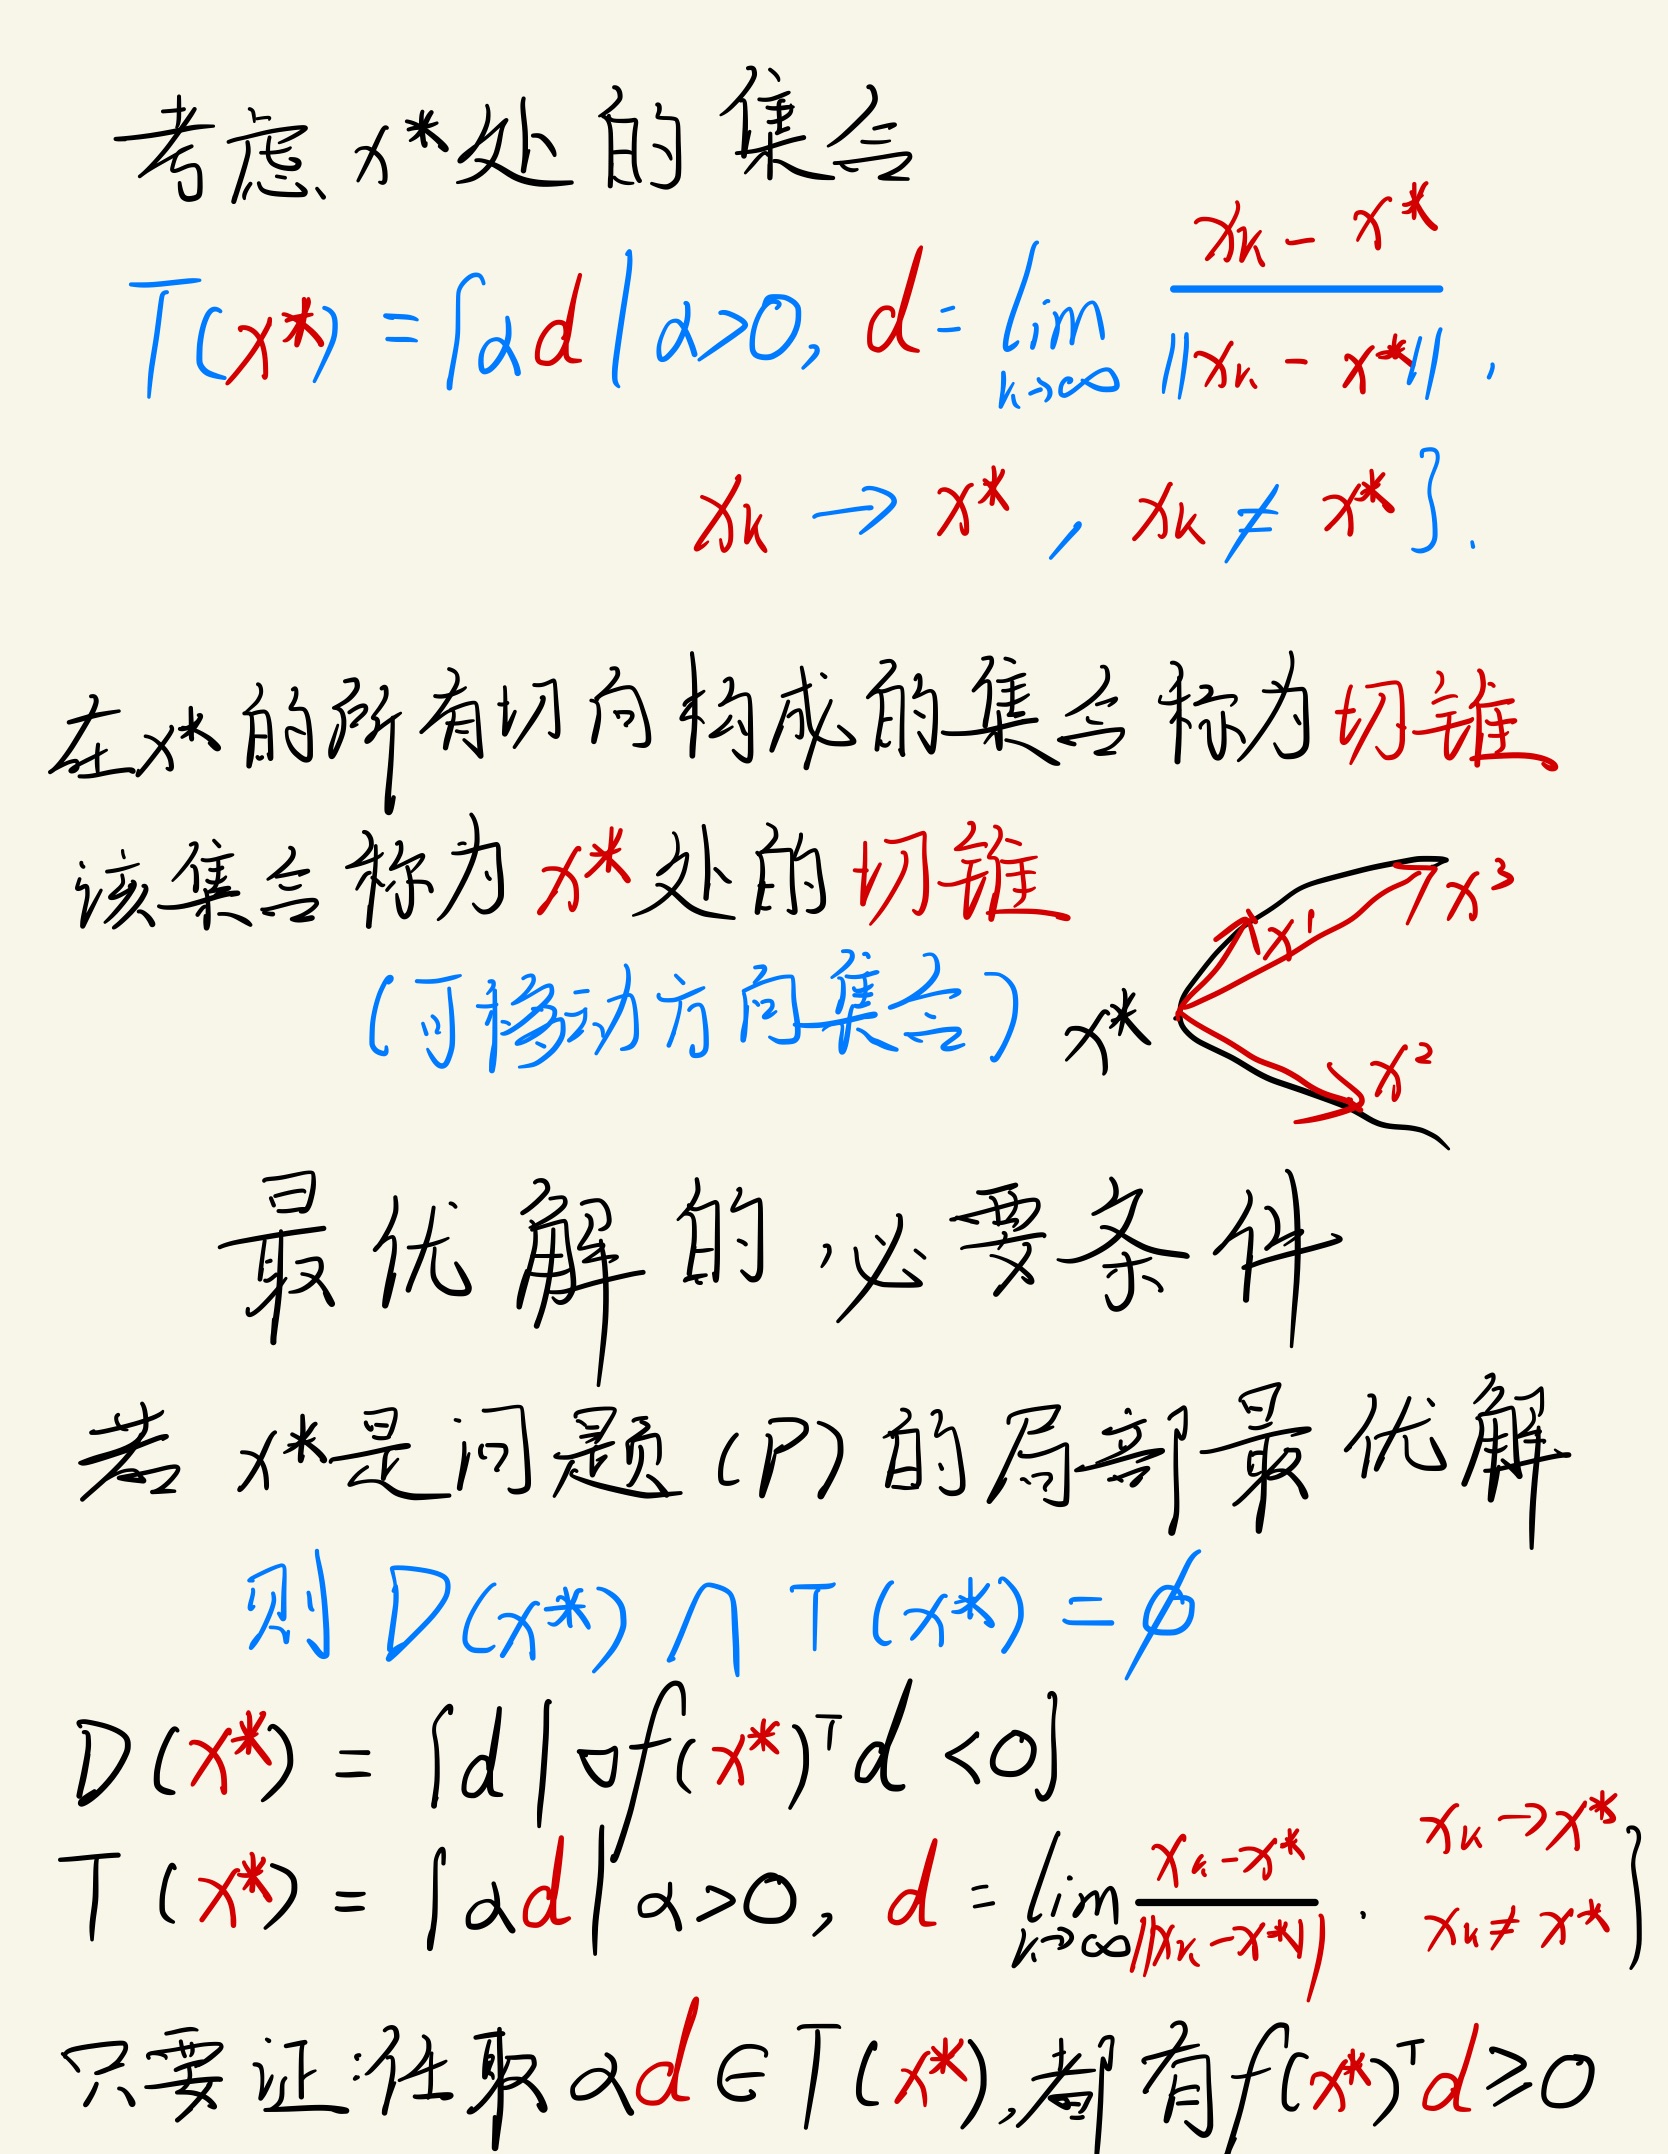 考虑 x*处的集合
T(x*) = {αd | α>0, d = lim k→∞ (xk - x*) / ||xk - x*|| ,
xk → x* , xk ≠ x* }.
在x*的所有切向构成的集合称为切锥
该集合称为 x*处的切锥
x³
x¹
(可移动方向集合)
x*
x²
最优解的必要条件
若 x*是问题(P)的局部最优解
则 D(x*) ∩ T(x*) = ∅
D(x*) = {d | ∇f(x*)ᵀd <0}
T(x*) = {αd | α>0, d = lim k→∞ (xk - x*) / ||xk - x*|| . xk → x* xk ≠ x* }
只要证:任取 αd ∈ T(x*),都有f(x*)ᵀd ≥0